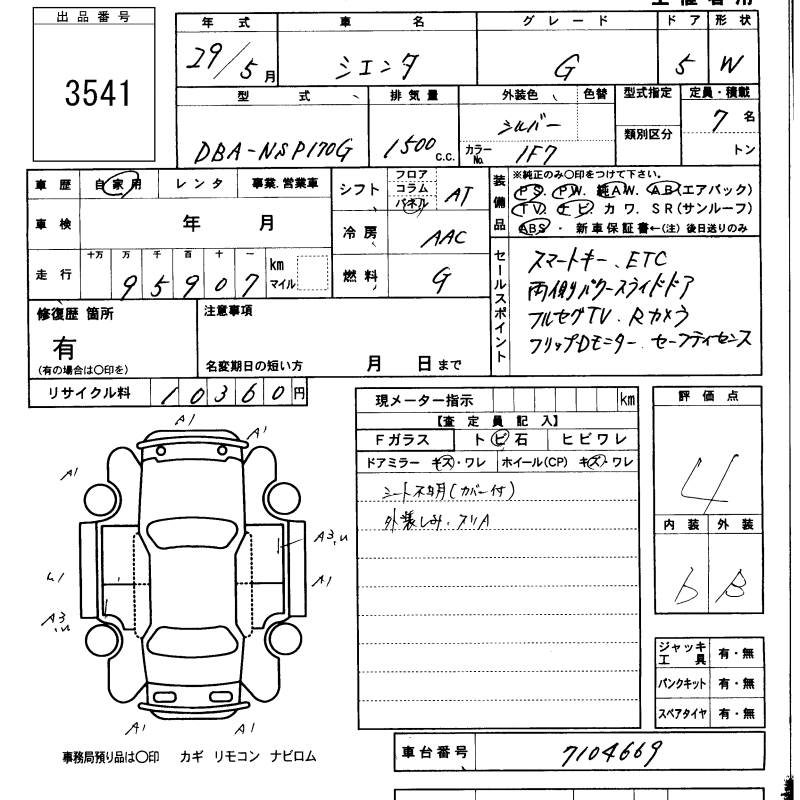 出品番号
3541
年式 車名 グレード ドア 形状
29/5月 シエンタ G 5 W
型式 排気量 外装色 色替 型式指定 定員・積載
DBA-NSP170G 1500 C.C. シルバー 類別区分 7名
カラーNo. 1F7 トン
車歴 自家用 レンタ 事業.営業車
車検 年 月
走行 十万 万 千 百 十 一
95907 km マイル
シフト フロア コラム パネル AT
冷房 AAC
燃料 G
装備品
※純正のみ○印をつけて下さい。
PS. PW. 純AW. AB(エアバック)
TV. ナビ. カワ. SR(サンルーフ)
ABS・新車保証書←(注)後日送りのみ
セールスポイント
スマートキー、ETC
両側パワースライドドア
フルセグTV. Rカメラ
フリップDモニター. セーフティセンス
修復歴 箇所
有
(有の場合は○印を)
注意事項
名変期日の短い方 月 日まで
リサイクル料 10360円
現メーター指示 km
【査定員記入】
Fガラス トビ石 ヒビワレ
ドアミラー キズ・ワレ ホイール(CP) キズ・ワレ
シート不明(カバー付)
外装しみ・スリA
評価点
4
内装 外装
b B
A1
A1
A1
A3
A1
A3
A1
A1
ジャッキ工具 有・無
パンクキット 有・無
スペアタイヤ 有・無
事務局預り品は○印 カギ リモコン ナビロム
車台番号 7104669